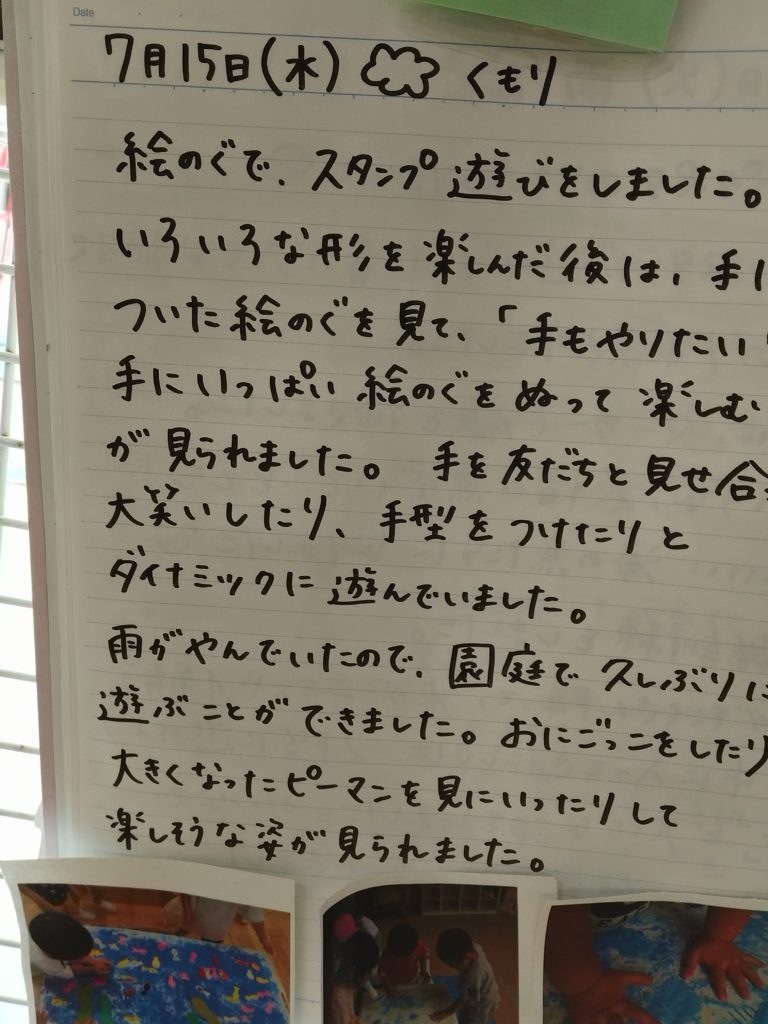 Date
7月15日(水) くもり
絵のぐで、スタンプ遊びをしました。
いろいろな形を楽しんだ後は、手に
ついた絵のぐを見て、「手もやりたい
手にいっぱい絵のぐをぬって楽しむ
が見られました。手を友だちと見せ合
大笑いしたり、手型をつけたりと
ダイナミックに遊んでいました。
雨がやんでいたので、園庭で久しぶりに
遊ぶことができました。おにごっこをしたり
大きくなったピーマンを見にいったりして
楽しそうな姿が見られました。